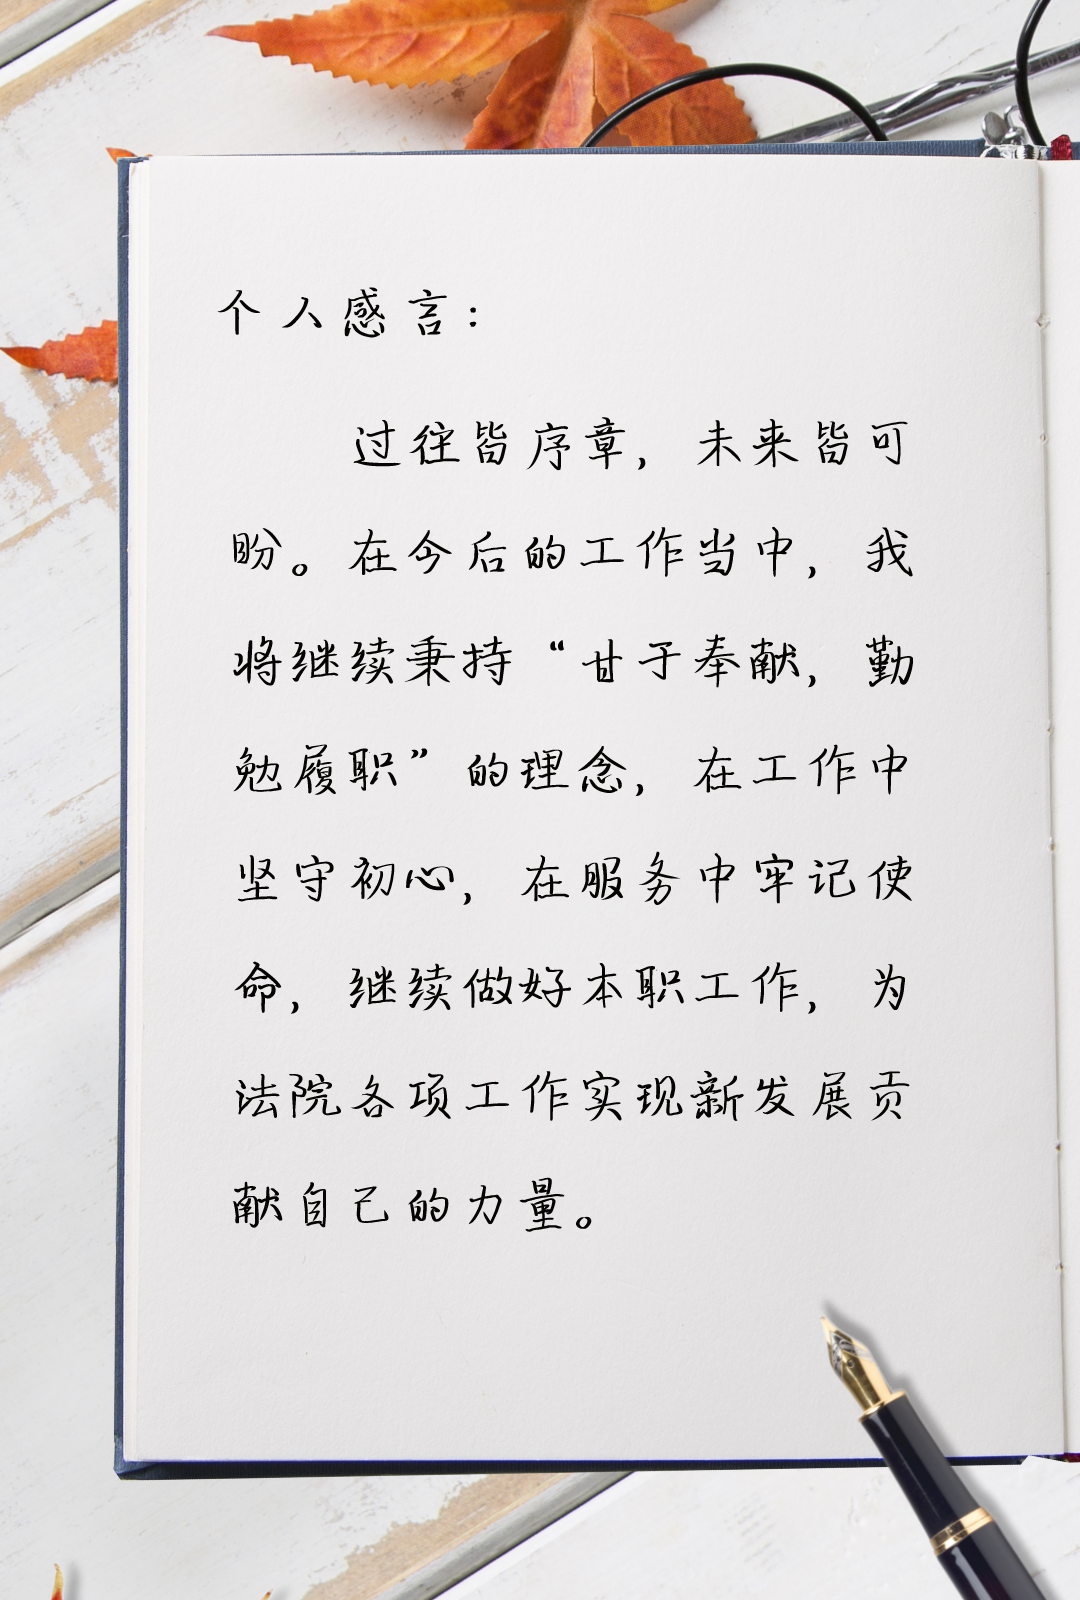 个人感言：
过往皆序章，未来皆可
盼。在今后的工作当中，我
将继续秉持“甘于奉献，勤
勉履职”的理念，在工作中
坚守初心，在服务中牢记使
命，继续做好本职工作，为
法院各项工作实现新发展贡
献自己的力量。